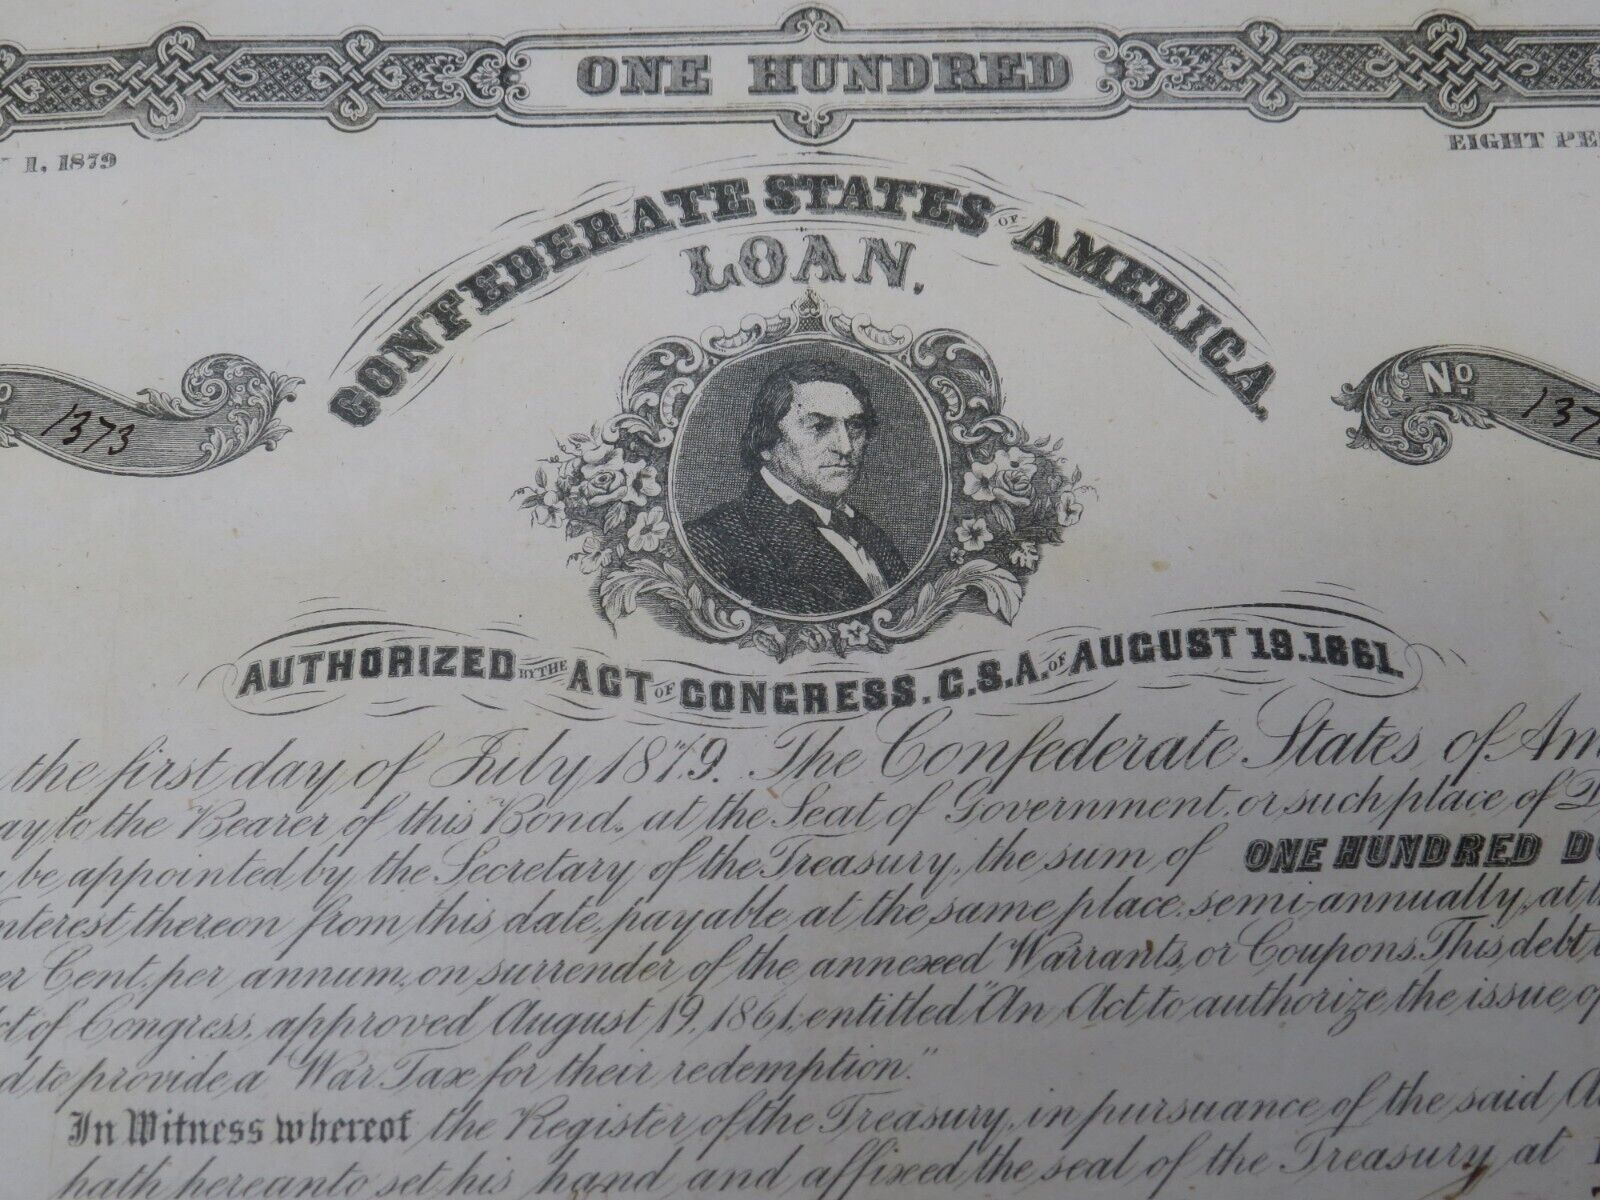 ONE HUNDRED
1, 1879
EIGHT PE
CONFEDERATE STATES OF AMERICA
LOAN,
1373
No. 137
AUTHORIZED BY THE ACT OF CONGRESS. C.S.A. OF AUGUST 19. 1861.
the first day of July 1879. The Confederate States of Am
ay to the Bearer of this Bond, at the Seat of Government, or such place of D
be appointed by the Secretary of the Treasury, the sum of ONE HUNDRED DO
nterest thereon from this date, payable at the same place, semi-annually, at t
er Cent. per annum, on surrender of the annexed Warrants, or Coupons. This debt
ct of Congress, approved August 19, 1861, entitled "An Act to authorize the issue of
d to provide a War Tax for their redemption."
In Witness whereof the Register of the Treasury, in pursuance of the said A
hath hereunto set his hand and affixed the seal of the Treasury at